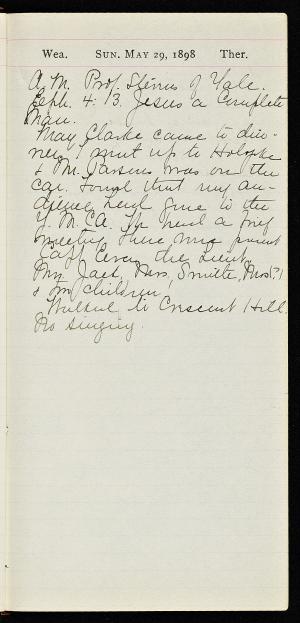 Wea. SUN. MAY 29, 1898 Ther.
A. M. Prof. Stevens of Yale.
Eph. 4:13. Jesus a Complete
Man.
May Clarke came to din-
ner. I went up to Holyoke
& Mr. Parsons was on the
car. Found that my au-
dience had gone to the
Y. M. C. A. We held a brief
meeting. There was present
Capt. the Lieut,
Mr. Mrs. Smith, Mrs. ?
& children,
Walked to Crescent Hill.
No singing.